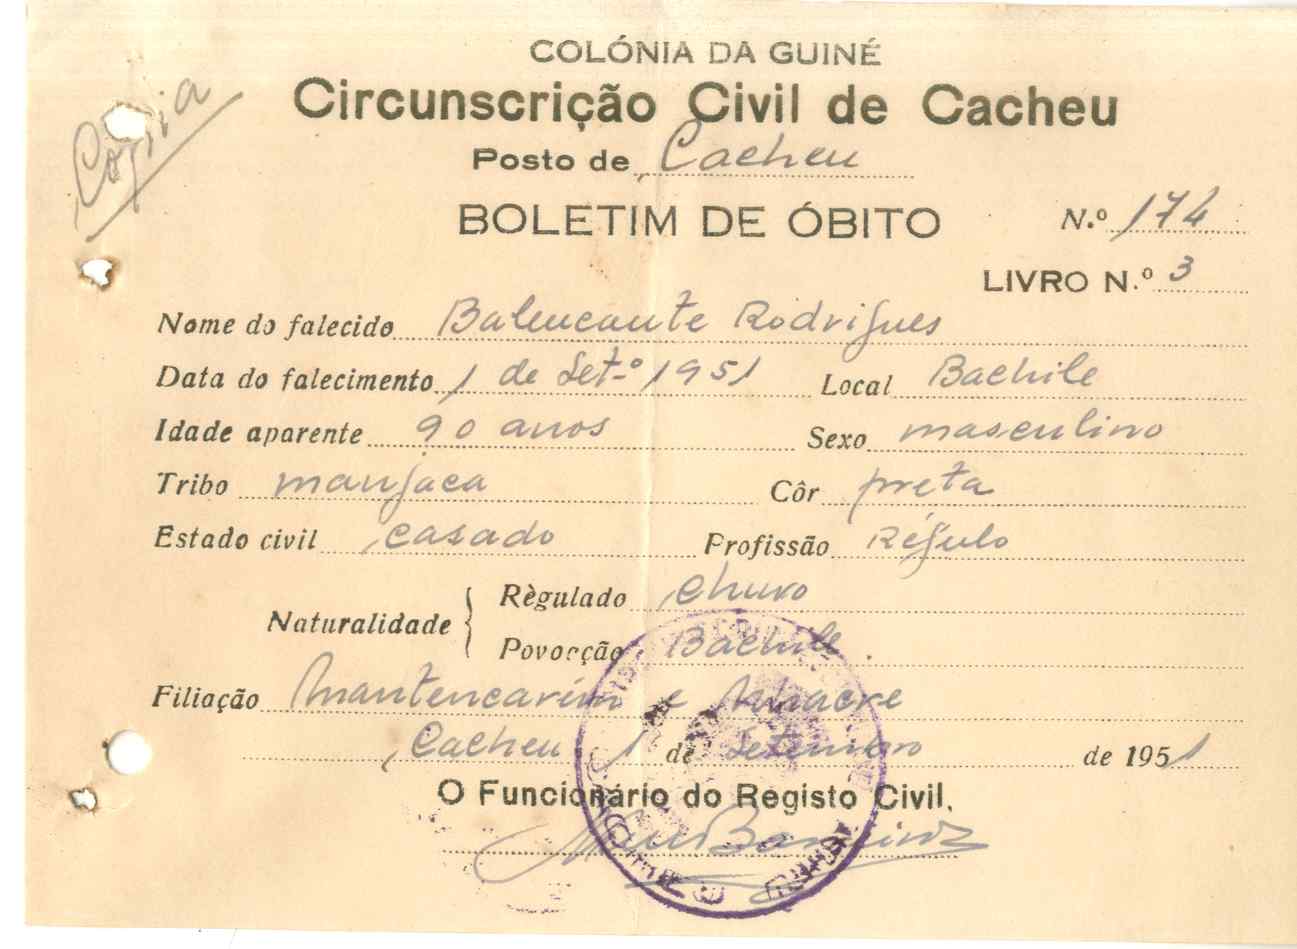 Copia
COLÓNIA DA GUINÉ
Circunscrição Civil de Cacheu
Posto de Cacheu
BOLETIM DE ÓBITO N.º 174
LIVRO N.º 3
Nome do falecido Baleucaute Rodrigues
Data do falecimento 1 de Set.º 1951 Local Bachile
Idade aparente 90 anos Sexo masculino
Tribo manjaca Côr preta
Estado civil casado Profissão Régulo
Naturalidade Règulado churo
Povoação Bachile
Filiação Mantencarim e
Cacheu 1 de Setembro de 1951
O Funcionário do Registo Civil,